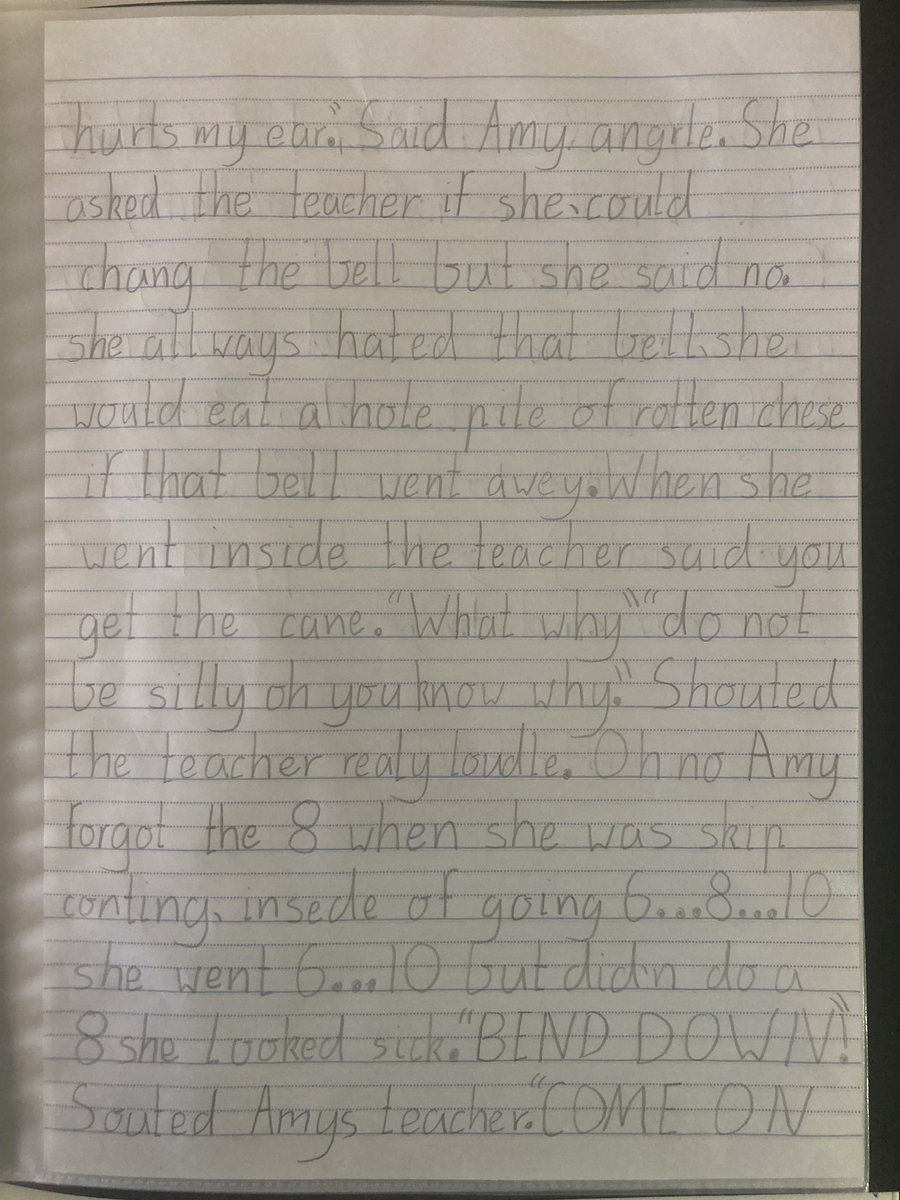 hurts my ear.", Said Amy, angrle. She
asked the teacher if she could
chang the bell but she said no.
she all ways hated that bell, she
would eat a hole pile of rotten chese
if that bell went awey. When she
went inside the teacher said you
get the cane. "What why" "do not
be silly oh you know why." Shouted
the teacher realy loudle. Oh no Amy
forgot the 8 when she was skip
conting, insede of going 6...8...10
she went 6...10 but didn do a
8 she Looked sick. "BEND DOWN!"
Souted Amys teacher. "COME ON